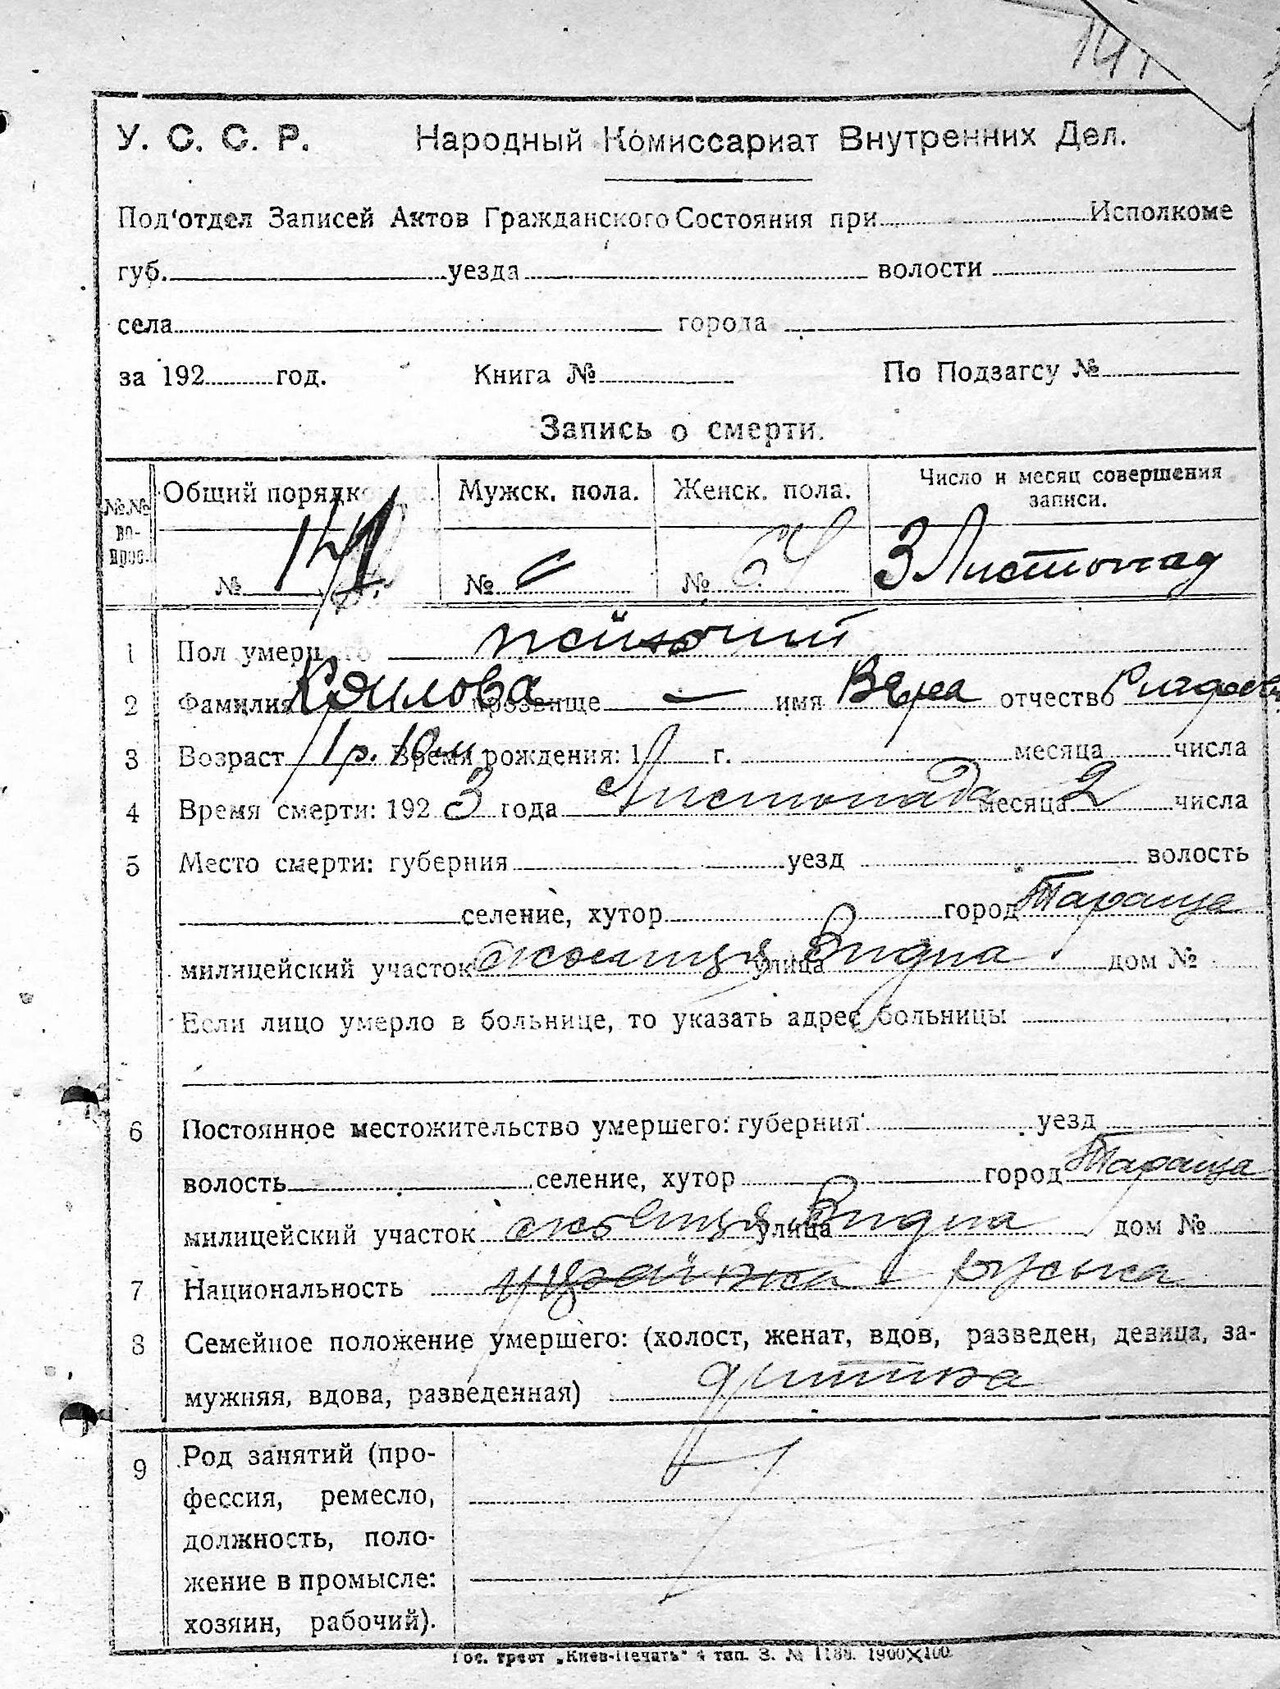 У. С. С. Р. Народный Комиссариат Внутренних Дел.
Под'отдел Записей Актов Гражданского Состояния при Исполкоме
губ. уезда волости
села города
за 192 год. Книга № По Подзагсу №
Запись о смерти.
№№ вопрос. Общий порядк Мужск. пола. Женск. пола. Число и месяц совершения записи.
№ 141 № № 64 3 Листопад
1 Пол умерш жіночий
2 Фамилия прозвище — имя Вера отчество
3 Возраст 1 р. 10 м. Время рождения: 1 г. месяца числа
4 Время смерти: 1923 года Листопада месяца 2 числа
5 Место смерти: губерния уезд волость
селение, хутор город Тараща
милицейский участок околиця улица дом №
Если лицо умерло в больнице, то указать адрес больницы
6 Постоянное местожительство умершего: губерния уезд
волость селение, хутор город Тараща
милицейский участок околиця улица дом №
7 Национальность руська
8 Семейное положение умершего: (холост, женат, вдов, разведен, девица, за-
мужняя, вдова, разведенная) дитина
9 Род занятий (про-
фессия, ремесло,
должность, поло-
жение в промысле:
хозяин, рабочий).
Гос. трест „Киев-Печать" 4 тип. З. № 1900×100